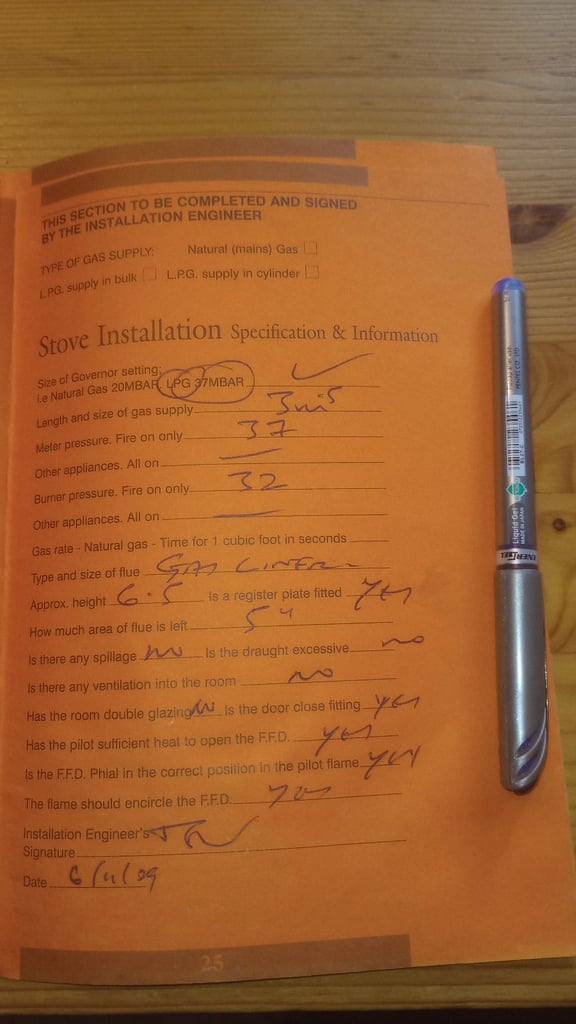 THIS SECTION TO BE COMPLETED AND SIGNED
BY THE INSTALLATION ENGINEER
TYPE OF GAS SUPPLY: Natural (mains) Gas
L.P.G. supply in bulk L.P.G. supply in cylinder
Stove Installation Specification & Information
Size of Governor setting;
i.e Natural Gas 20MBAR, LPG 37MBAR ✓
Length and size of gas supply
Meter pressure. Fire on only 37
Other appliances. All on —
Burner pressure. Fire on only 32
Other appliances. All on —
Gas rate - Natural gas - Time for 1 cubic foot in seconds
Type and size of flue GAS LINER
Approx. height 6.5 Is a register plate fitted yes
How much area of flue is left 5"
Is there any spillage no Is the draught excessive no
Is there any ventilation into the room no
Has the room double glazing no Is the door close fitting yes
Has the pilot sufficient heat to open the F.F.D. yes
Is the F.F.D. Phial in the correct position in the pilot flame yes
The flame should encircle the F.F.D. yes
Installation Engineer's
Signature
Date 6/11/09
25
Liquid Gel
MADE IN JAPAN
ENERGEL